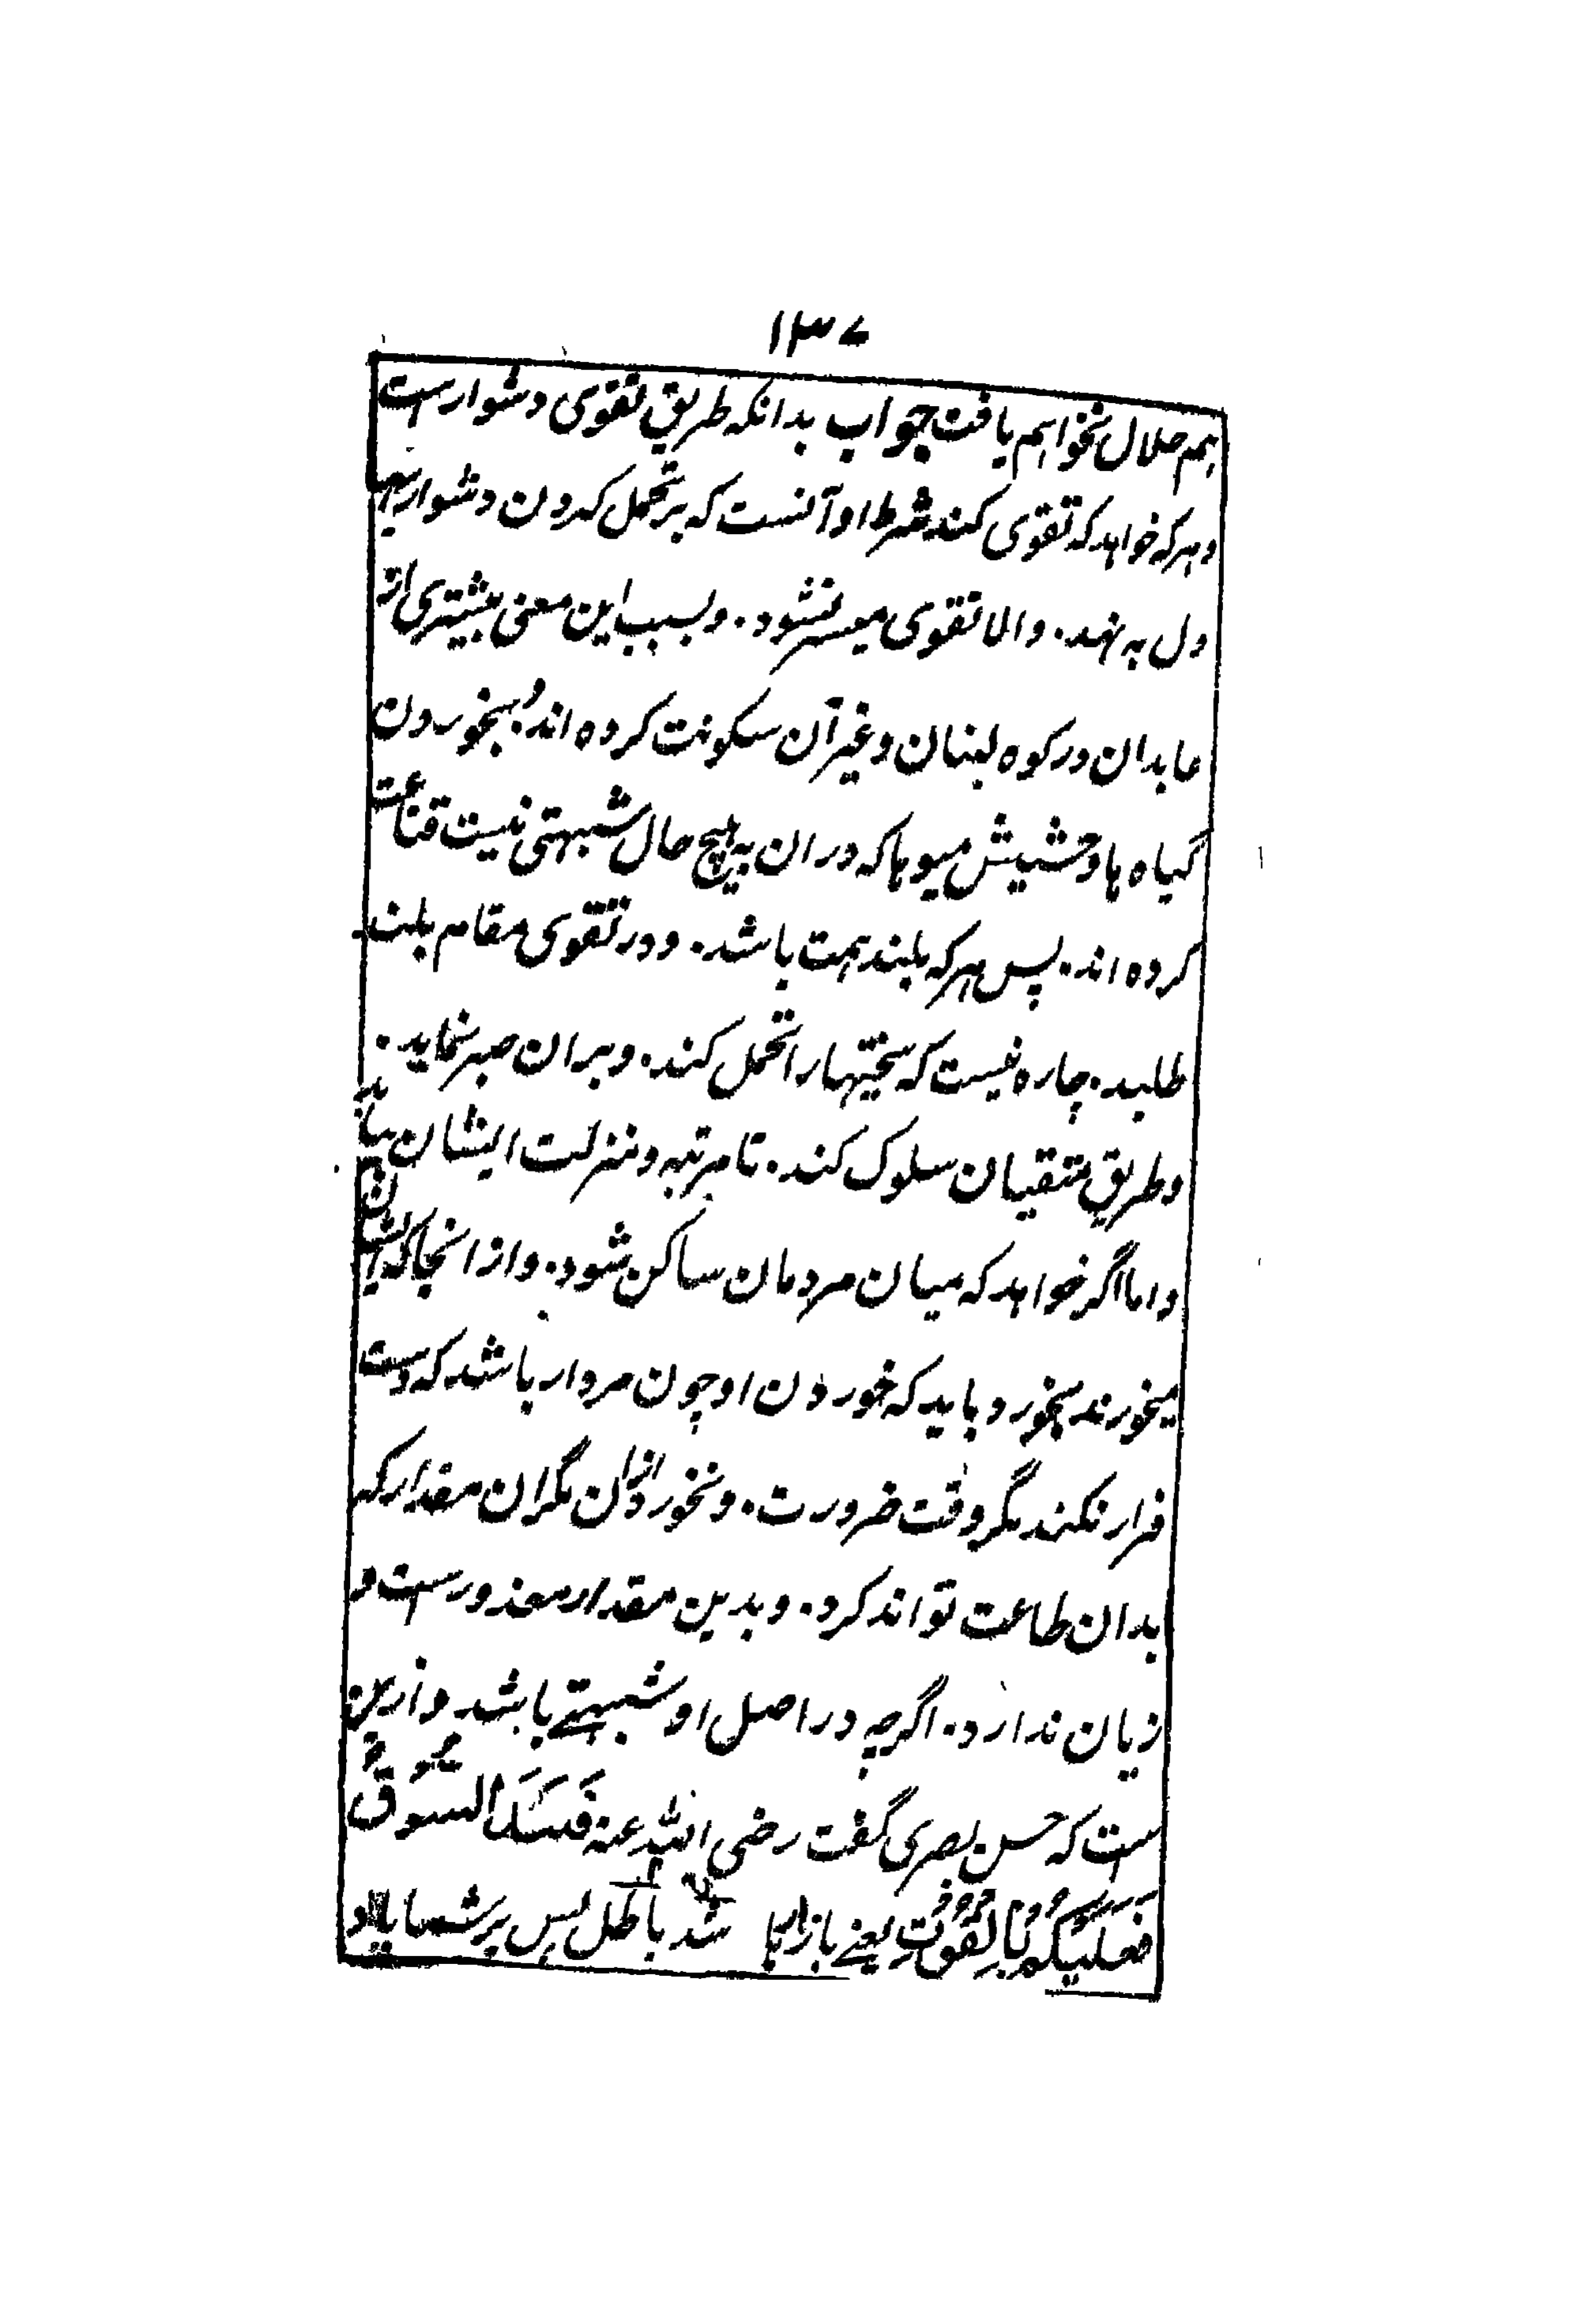 ۱۳۷
هم حلال نخواهم یافت جواب بدانکه طریق تقوی دشوارست
و هرکه خواهد که تقوی کند شرط او آنست که بر تحمل کردن دشواریها
دل به نهد۔ والا تقوی میسر نشود۔ و بسبب این معنی بیشتری از
عابدان در کوه لبنان و غیر آن سکونت کرده اند و بخوردن
گیاه ها و حشیش میوها که در ان به هیچ حال شبهتی نیست قناعت
کرده اند۔ پس هرکه بلند همت باشد۔ و در تقوی مقام بلند
طلبد۔ چاره نیست که سختیها را تحمل کند۔ و بران صبر نماید۔
و طریق متقیان سلوک کند۔ تا مرتبه و منزلت ایشان یابد
و اما اگر خواهد که میان مردمان ساکن شود۔ و از انجا که ایشان
میخورند بخورد باید که خوردن او چون مردار باشد که دست
فراز نکند مگر وقت ضرورت۔ و نخورد ازان مگر ان مقدار که
بدان طاعت تواند کرد۔ و بدین مقدار معذورست و
زیان ندارد۔ اگرچه در اصل او شبهتے باشد و ازین
ست که حسن بصری گفت رضی الله عنه فَسَدَ السُّوْقُ
فَعَلَیْکُمْ بِالْقُوْتِ یعنے بازارها شد باطل پس بر شما باد